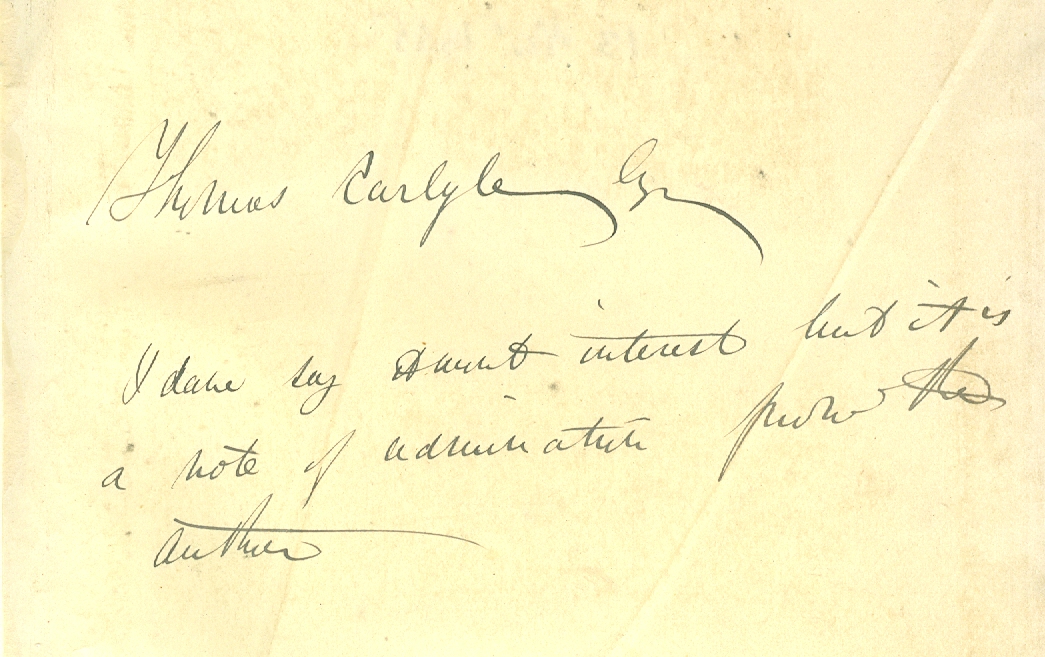 Thomas Carlyle Esqr
I dare say interest but it is
a note of admiration from the
author